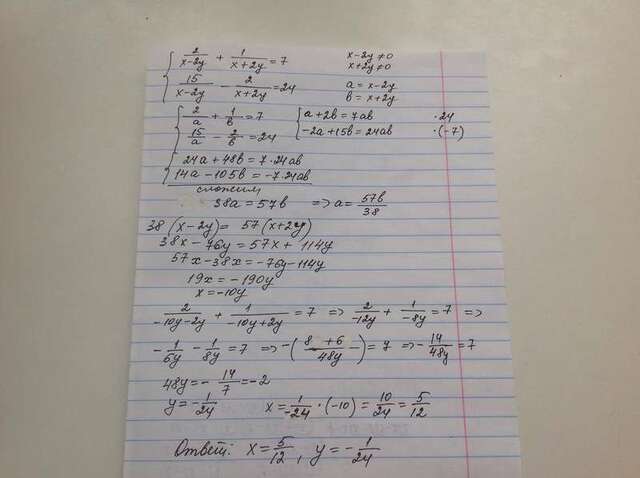 2/(x-2y) + 1/(x+2y) = 7    x-2y≠0
x+2y≠0
15/(x-2y) - 2/(x+2y) = 24    a = x-2y
b = x+2y
2/a + 1/b = 7    a+2b = 7ab    ·24
15/a - 2/b = 24    -2a+15b = 24ab    ·(-7)
24a+48b = 7·24ab
14a-105b = -7·24ab
сложим
38a = 57b    => a = 57b/38
38(x-2y) = 57(x+2y)
38x-76y = 57x+114y
57x-38x = -76y-114y
19x = -190y
x = -10y
2/(-10y-2y) + 1/(-10y+2y) = 7 => 2/(-12y) + 1/(-8y) = 7 =>
- 1/(6y) - 1/(8y) = 7 => -((8+6)/(48y)) = 7 => - 14/(48y) = 7
48y = - 14/7 = -2
y = - 1/24    x = 1/(-24) · (-10) = 10/24 = 5/12
Ответ: x = 5/12, y = - 1/24